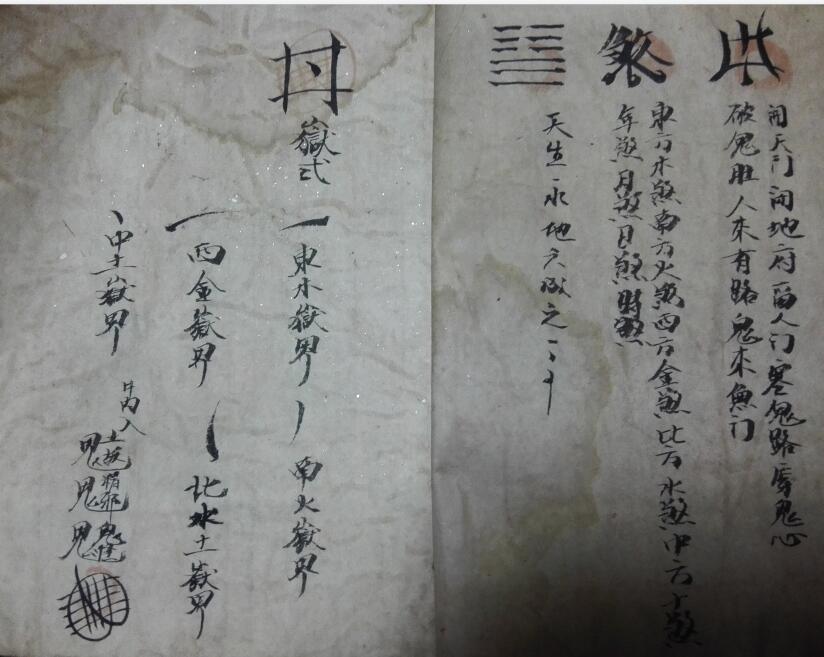 開天門閉地府留人门塞鬼路穿鬼心
破鬼肚人來有路鬼來無门
煞
東方木煞南方火煞西方金煞北方水煞中方土煞
年煞月煞日煞時煞
天生一水地六成之
井
獄式
一東木獄界
南火獄界
西金獄界
北水土獄界
中土獄界
井内入
鬼鬼鬼